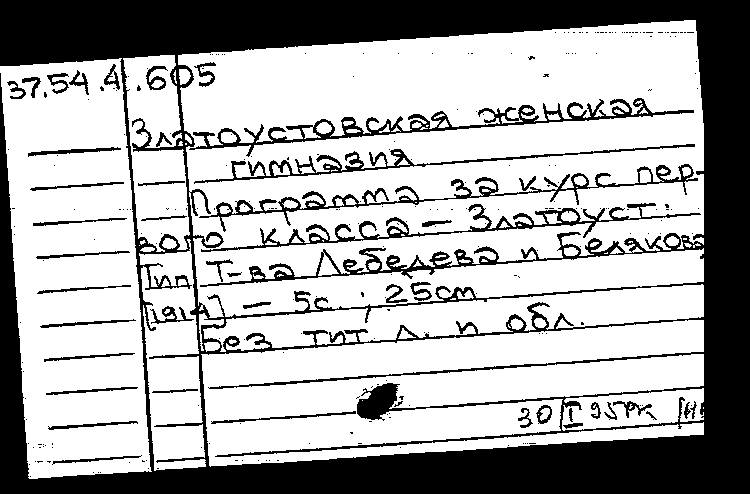 37.54.4.605
Златоустовская женская
гимназия
Программа за курс пер-
вого класса — Златоуст:
Тип. Т-ва Лебедева и Белякова,
[1914] — 5с. ; 25см.
Без тит. л. и обл.
30/I 95РК